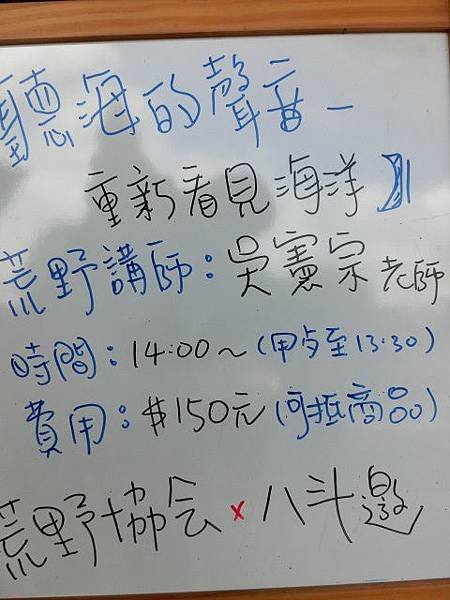 聽海的聲音—
重新看見海洋】
荒野講師：吳憲宗老師
時間：14:00～(至13:30)
費用：$150元(可抵商品)
荒野協会 x 八斗邀